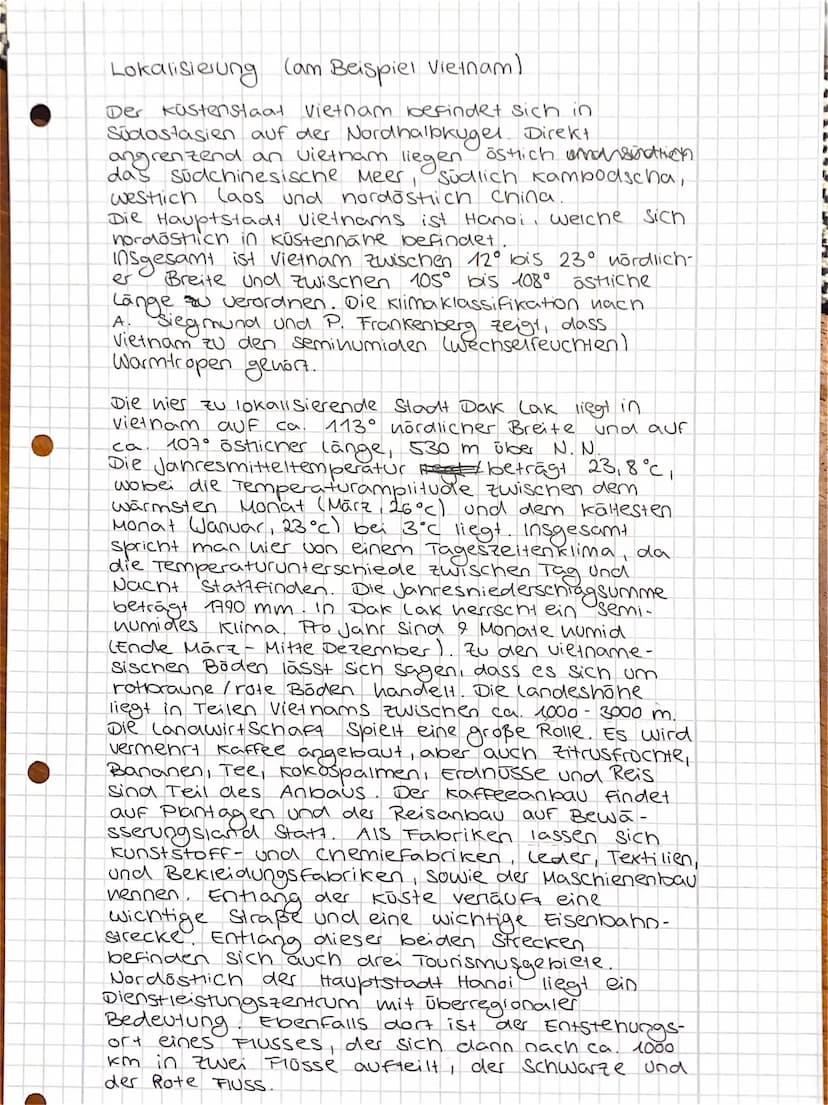 Lokalisierung (am Beispiel Vietnam)
Der Küstenstaat Vietnam befindet sich in
Südostasien auf der Nordhalbkugel. Direkt
angrenzend an Vietnam liegen östlich
das Südchinesische Meer, südlich Kambodscha,
westlich Laos und nordöstlich China.
Die Hauptstadt Vietnams ist Hanoi, welche sich
nordöstlich in Küstennähe befindet.
Insgesamt ist Vietnam zwischen 12° bis 23° nördlich-
er Breite und zwischen 105° bis 108° östliche
Länge zu verordnen. Die Klimaklassifikation nach
A. Siegmund und P. Frankenberg zeigt, dass
Vietnam zu den semihumiden (wechselfeuchten)
Warmtropen gehört.
Die hier zu lokalisierende Stadt Dak Lak liegt in
Vietnam auf ca. 113° nördlicher Breite und auf
ca. 107° östlicher Länge, 530 m über N.N.
Die Jahresmitteltemperatur beträgt 23,8°C,
wobei die Temperaturamplitude zwischen dem
wärmsten Monat (März, 26°C) und dem kältesten
Monat (Januar, 23°C) bei 3°C liegt. Insgesamt
spricht man hier von einem Tageszeitenklima, da
die Temperaturunterschiede zwischen Tag und
Nacht stattfinden. Die Jahresniederschlagsumme
beträgt 1790 mm. In Dak Lak herrscht ein semi-
humides Klima. Pro Jahr sind 9 Monate humid
(Ende März - Mitte Dezember). Zu den vietname-
sischen Böden lässt sich sagen, dass es sich um
rotbraune/rote Böden handelt. Die Landeshöhe
liegt in Teilen Vietnams zwischen ca. 1000 - 3000 m.
Die Landwirtschaft spielt eine große Rolle. Es wird
vermehrt Kaffee angebaut, aber auch Zitrusfrüchte,
Bananen, Tee, Kokospalmen, Erdnüsse und Reis
sind Teil des Anbaus. Der Kaffeeanbau findet
auf Plantagen und der Reisanbau auf Bewä-
sserungsland statt. Als Fabriken lassen sich
Kunststoff- und Chemiefabriken, Leder, Textilien,
und Bekleidungsfabriken, sowie der Maschienenbau
nennen. Entlang der Küste verläuft eine
wichtige Straße und eine wichtige Eisenbahn-
strecke. Entlang dieser beiden Strecken
befinden sich auch drei Tourismusgebiete.
Nordöstlich der Hauptstadt Hanoi liegt ein
Dienstleistungszentrum mit überregionaler
Bedeutung. Ebenfalls dort ist der Entstehungs-
ort eines Flusses, der sich dann nach ca. 1000
km in zwei Flüsse aufteilt, der Schwarze und
der Rote Fluss.